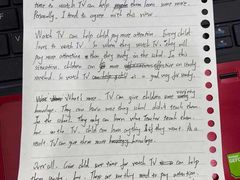 time to watch TV can help them learn some more.
Personally, I tend to agree with this view.
Watch TV can help pay more attention. Every child
loves to watch TV. So when they watch TV, they will
pay more attention than they study in the school. In this
situation, children can more effective on study
needed. So watch TV is a good way for study.
What's more, TV can give children some
knowledge. They can learn more they school didn't teach them.
In the school, they only can learn what teacher teach them.
but, on the TV, child can learn anything that they want. As a
result TV can give them more knowledge.
Over all. Give child some time for watch TV can help
them study. but, There are need to pay attention